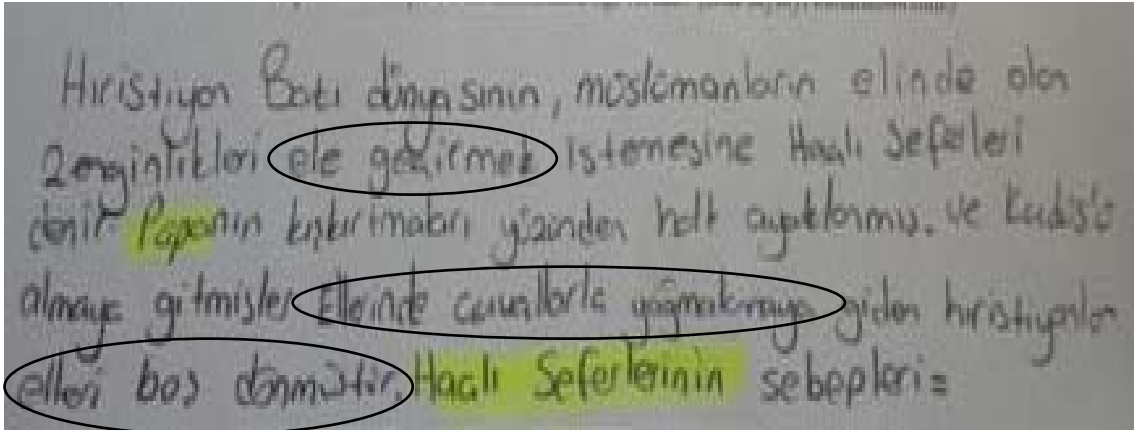 Hıristiyan Batı dünyasının, müslümanların elinde olan
Zenginlikleri ele geçirmek istemesine Haçlı Seferleri
denir Papanın kışkırtmaları yüzünden halk ayaklanmış. ve Kudüs'ü
almaya gitmişler Ellerinde çuvallarla yağmalamaya giden hıristiyanlar
elleri boş dönmüştür. Haçlı Seferlerinin sebepleri=